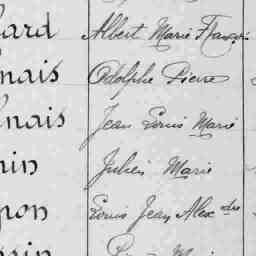 ard Albert Marie François
nais Adolphe Pierre
nais Jean Louis Marie
in Julien Marie
pon Louis Jean Alexdre
Marie